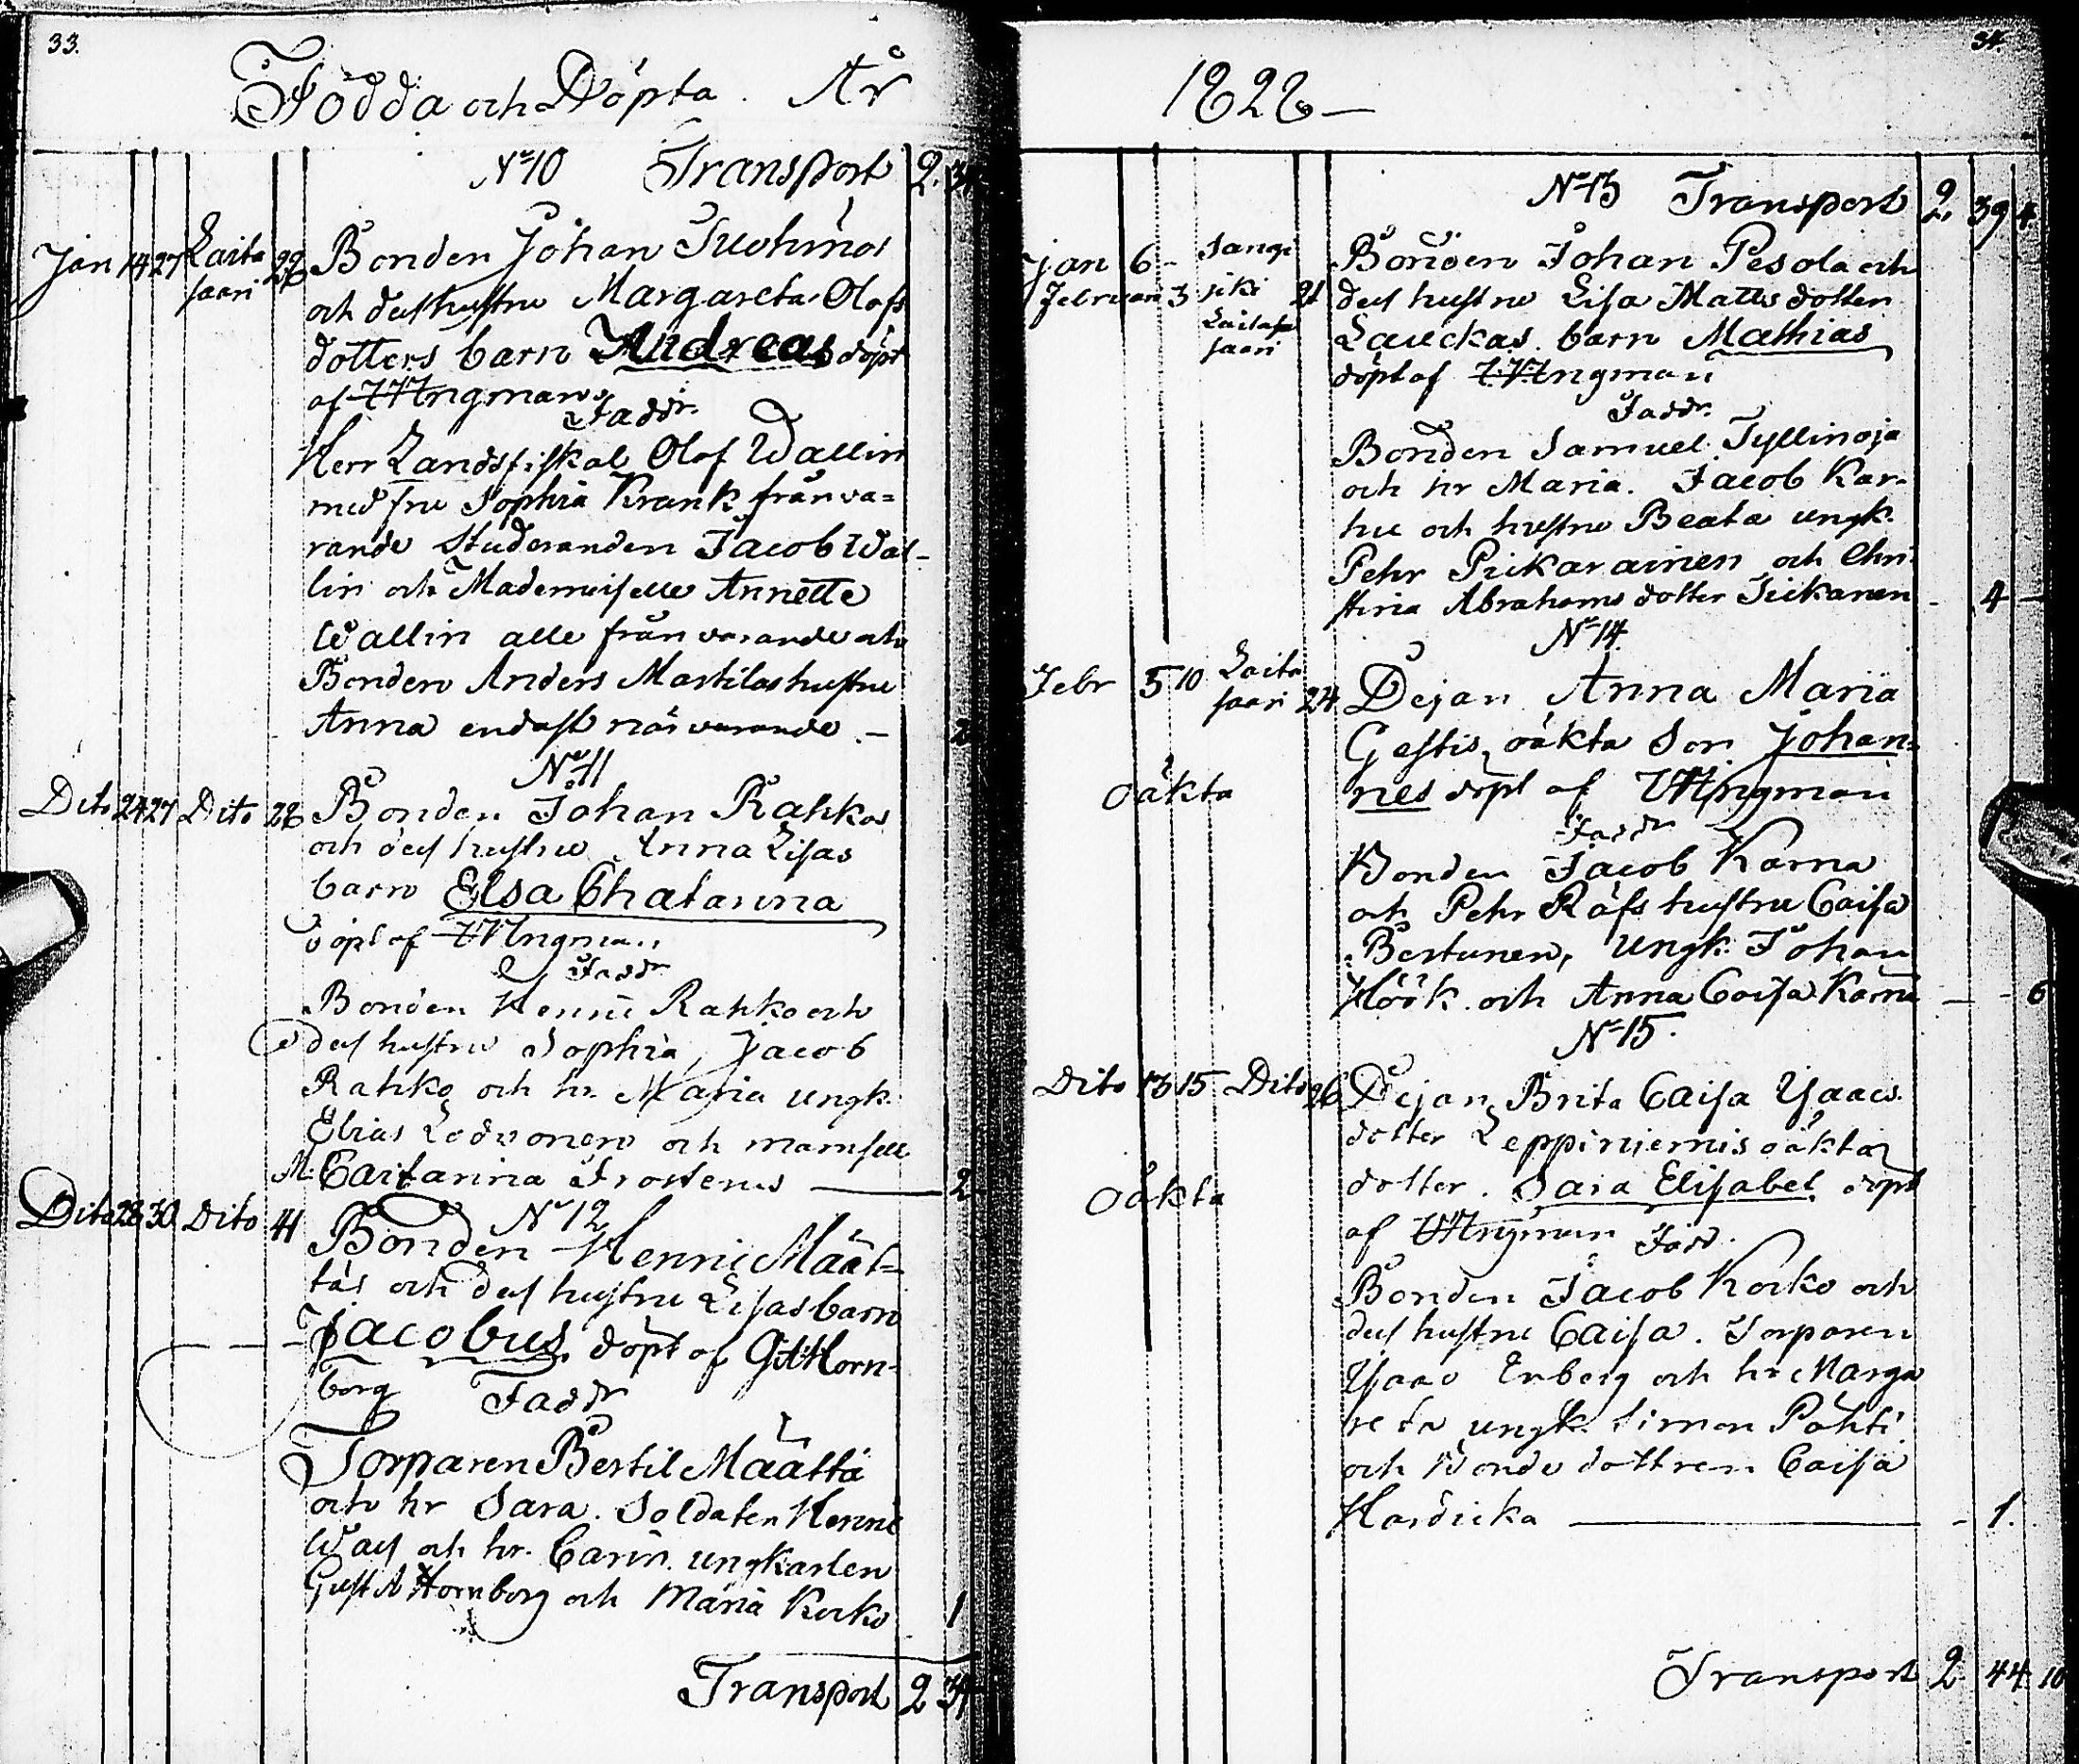 33.
Födda och Döpta. År
No 10 Transport 2. 34
Jan 14 27 Laita 28 Bonden Johan
saari
och dess hustru Margareta Olofs
dotters barn Andreas döpt
af Ingman
Fadd:r
Herr Landsfiskal Olof Wallin
med fru Sophia Krank från va=
rande Studeranden Jacob Wal-
lin och Mademoiselle Annette
Wallin alle från varande och
Bonden Anders Martilas hustru
Anna endast när varande. - 2
No 11
Dito 24 27 Dito 28 Bonden Johan Rahkos
och dess hustru Anna Lisas
barn Elsa Chatarina
döpt af Ingman
Fadd:r
Bonden Henric Rahko och
dess hustru Sophia, Jacob
Rahko och hr. Maria ungk.
Elias och mamsell
M. Caitarina Frosterus — 2
No 12
Dito 28 30 Dito 41 Bonden Henric Määt=
täs och dess hustru Lisas barn
Jacobus. döpt af G A Horn-
borg Fadd:r
Torparen Bertil Määttä
och hr Sara. Soldaten Henric
och hr. Carin. ungkarlen
Gust A Hornborg och Maria Korko 1
Transport 2 39
34.
1828 —
No 13 Transport 2. 39 4.
Jan 6 - Sangi Bonden Johan Pesola och
Februari 3 joki 21 dess hustru Lisa Matts dotter
Laita Lauckas. barn Mathias
saari
döpt af Ingman
Fadd:r
Bonden Samuel Tyllinoja
och hr Maria. Jacob Kar-
hu och hustru Beata ungk.
Pehr Pikarainen och Chri
stina Abrahams dotter - 4 -
No 14.
Febr 5 10 Laita 24 Pejan Anna Maria
saari
Gestis, oäkta Son Johan=
oäkta nes döpt af Ingman
Fadd:r
Bonden Jacob Karna
och Pehr Räfs hustru Caisa
Bertunen, Ungk. Johan
Höök. och Anna Caisa Karna — - 6
No 15.
Dito 13 15 Dito 26 Pejan Brita Caisa Isaacs
dotter Leppiniemis oäkta
oäkta dotter. Sara Elisabet döpt
af Ingman Fadd.
Bonden Jacob Korko och
dess hustru Caisa. Torparen
Isaac Enberg och hr Marga
reta ungk. Simon Pähti
och Bonde dottren Caisa
Hardicka — - 1.
Transport 2 44 10